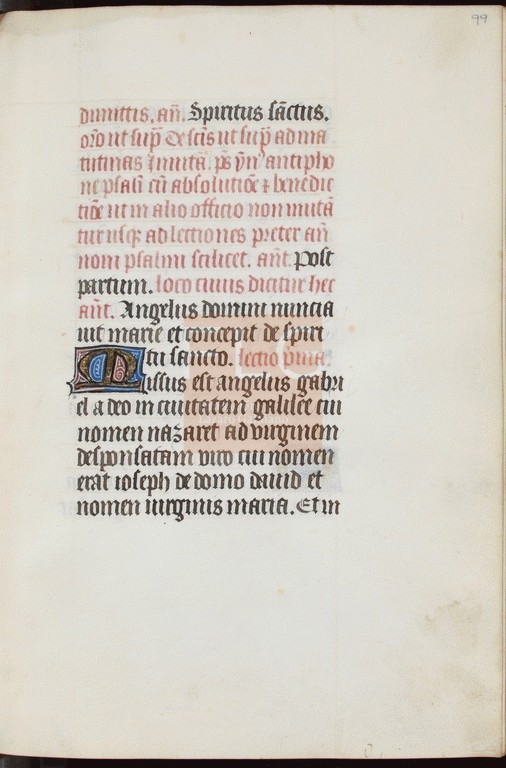 99
dimittis. an̄. Spiritus sāctus.
or̄o ut sup̄ De scīs ut sup̄ ad ma
tutinas Jnuitā. p̄s ȳn̄ antipho
ne psalī cū absolutiōe ⁊ benedic
tiōe ut in alio officio non mutā
tur usq̄ ad lectiones preter an̄
noni psalmi scilicet. ant̄. Post
partum. loco cuius dicitur hec
ant̄. Angelus domini nuncia
uit marie et concepit de spiri
tu sancto. lectio p̄ma.
Missus est angelus gabri
el a deo in ciuitatem galilee cui
nomen nazaret ad uirginem
desponsatam uiro cui nomen
erat ioseph de domo dauid et
nomen uirginis maria. Et in